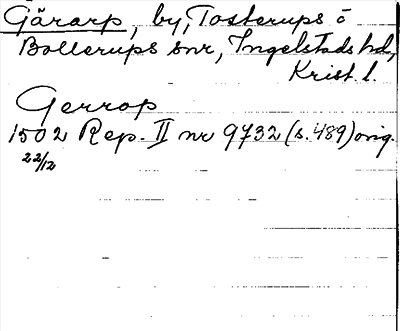 Gärarp, by, Tosterups o
Bollerups snr, Ingelstads hd,
Krist. l.
Gerrop
1502 Rep. II nr 9732 (s. 489) orig.
22/12